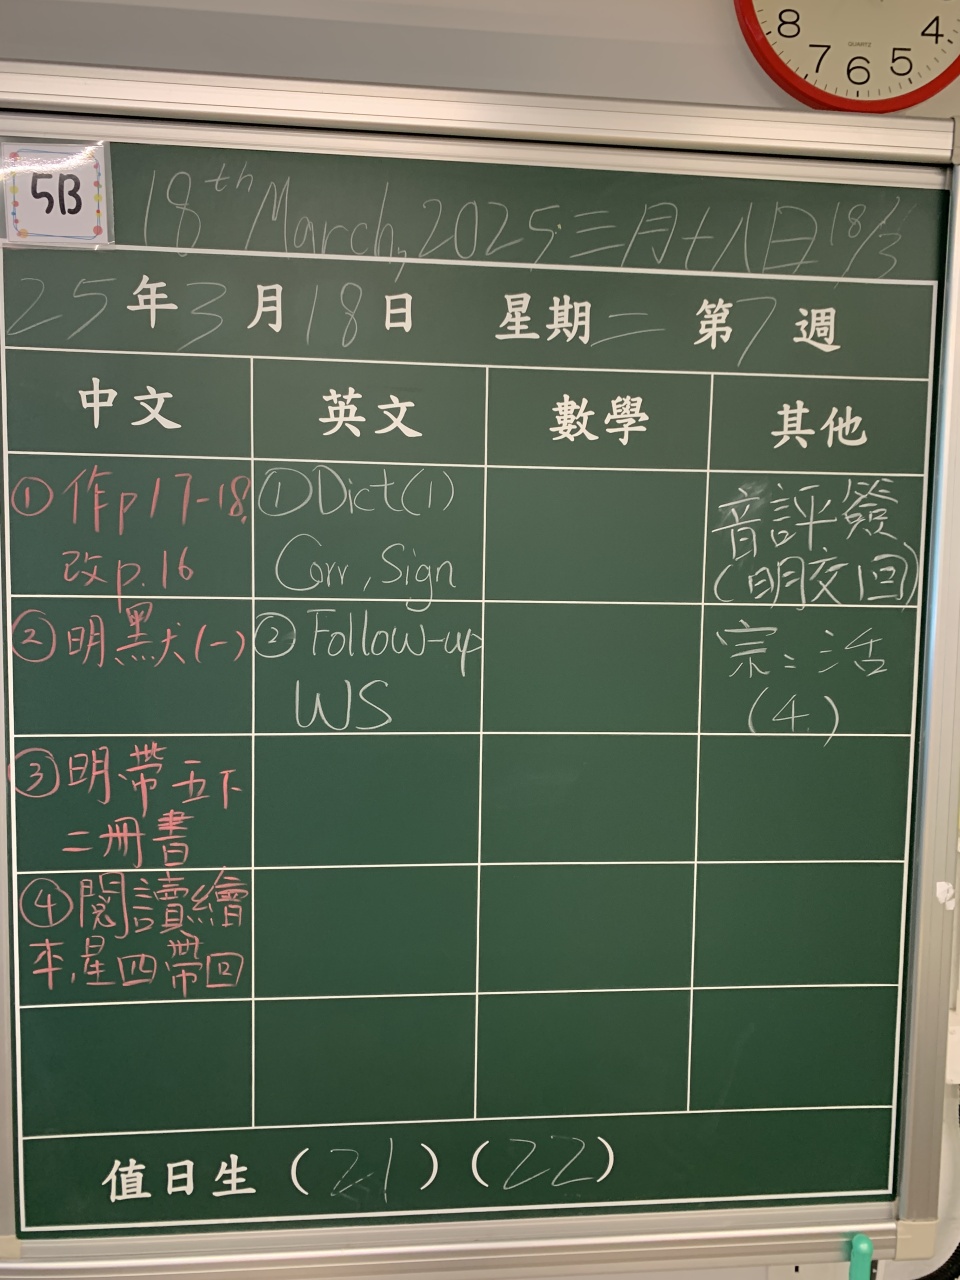 8 7 6 5 4
QUARTZ
5B
18th March, 2025 三月十八日 18/3
25年3月18日 星期二 第7週
中文 英文 數學 其他
①作p17-18,
改p.16
②明默犬(一)
③明帶五下
二冊書
④閱讀繪
本,星四帶回
①Dict(1)
Corr, Sign
②Follow-up
WS
音評簽
(明交回)
宗:活
(4.)
值日生(21)(22)